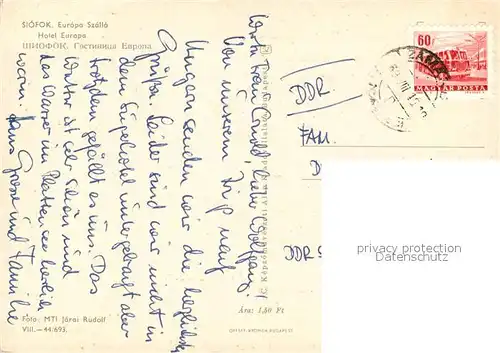 SIÓFOK. Európa Szálló
Hotel Europa
ШИОФОК. Гостиница Европа
Liebe Frau Trudl, lieber Wolfgang!
Von unserem Trip nach
Ungarn senden wir die herzlichsten
Grüße. Leider sind wir nicht in
dem Superhotel untergebracht aber
trotzdem gefällt es uns. Das
Wetter ist sehr schön und
das Wasser im Plattensee herrlich
warm. Hans Grosse und Familie
Foto: MTI Járai Rudolf
VIII.—44/693.
Képzőművészeti Alap Kiadóvállalata, Budapest
Ára: 1,50 Ft
60
MAGYAR POSTA
DDR
FAM.
D
DDR
privacy protection
Datenschutz